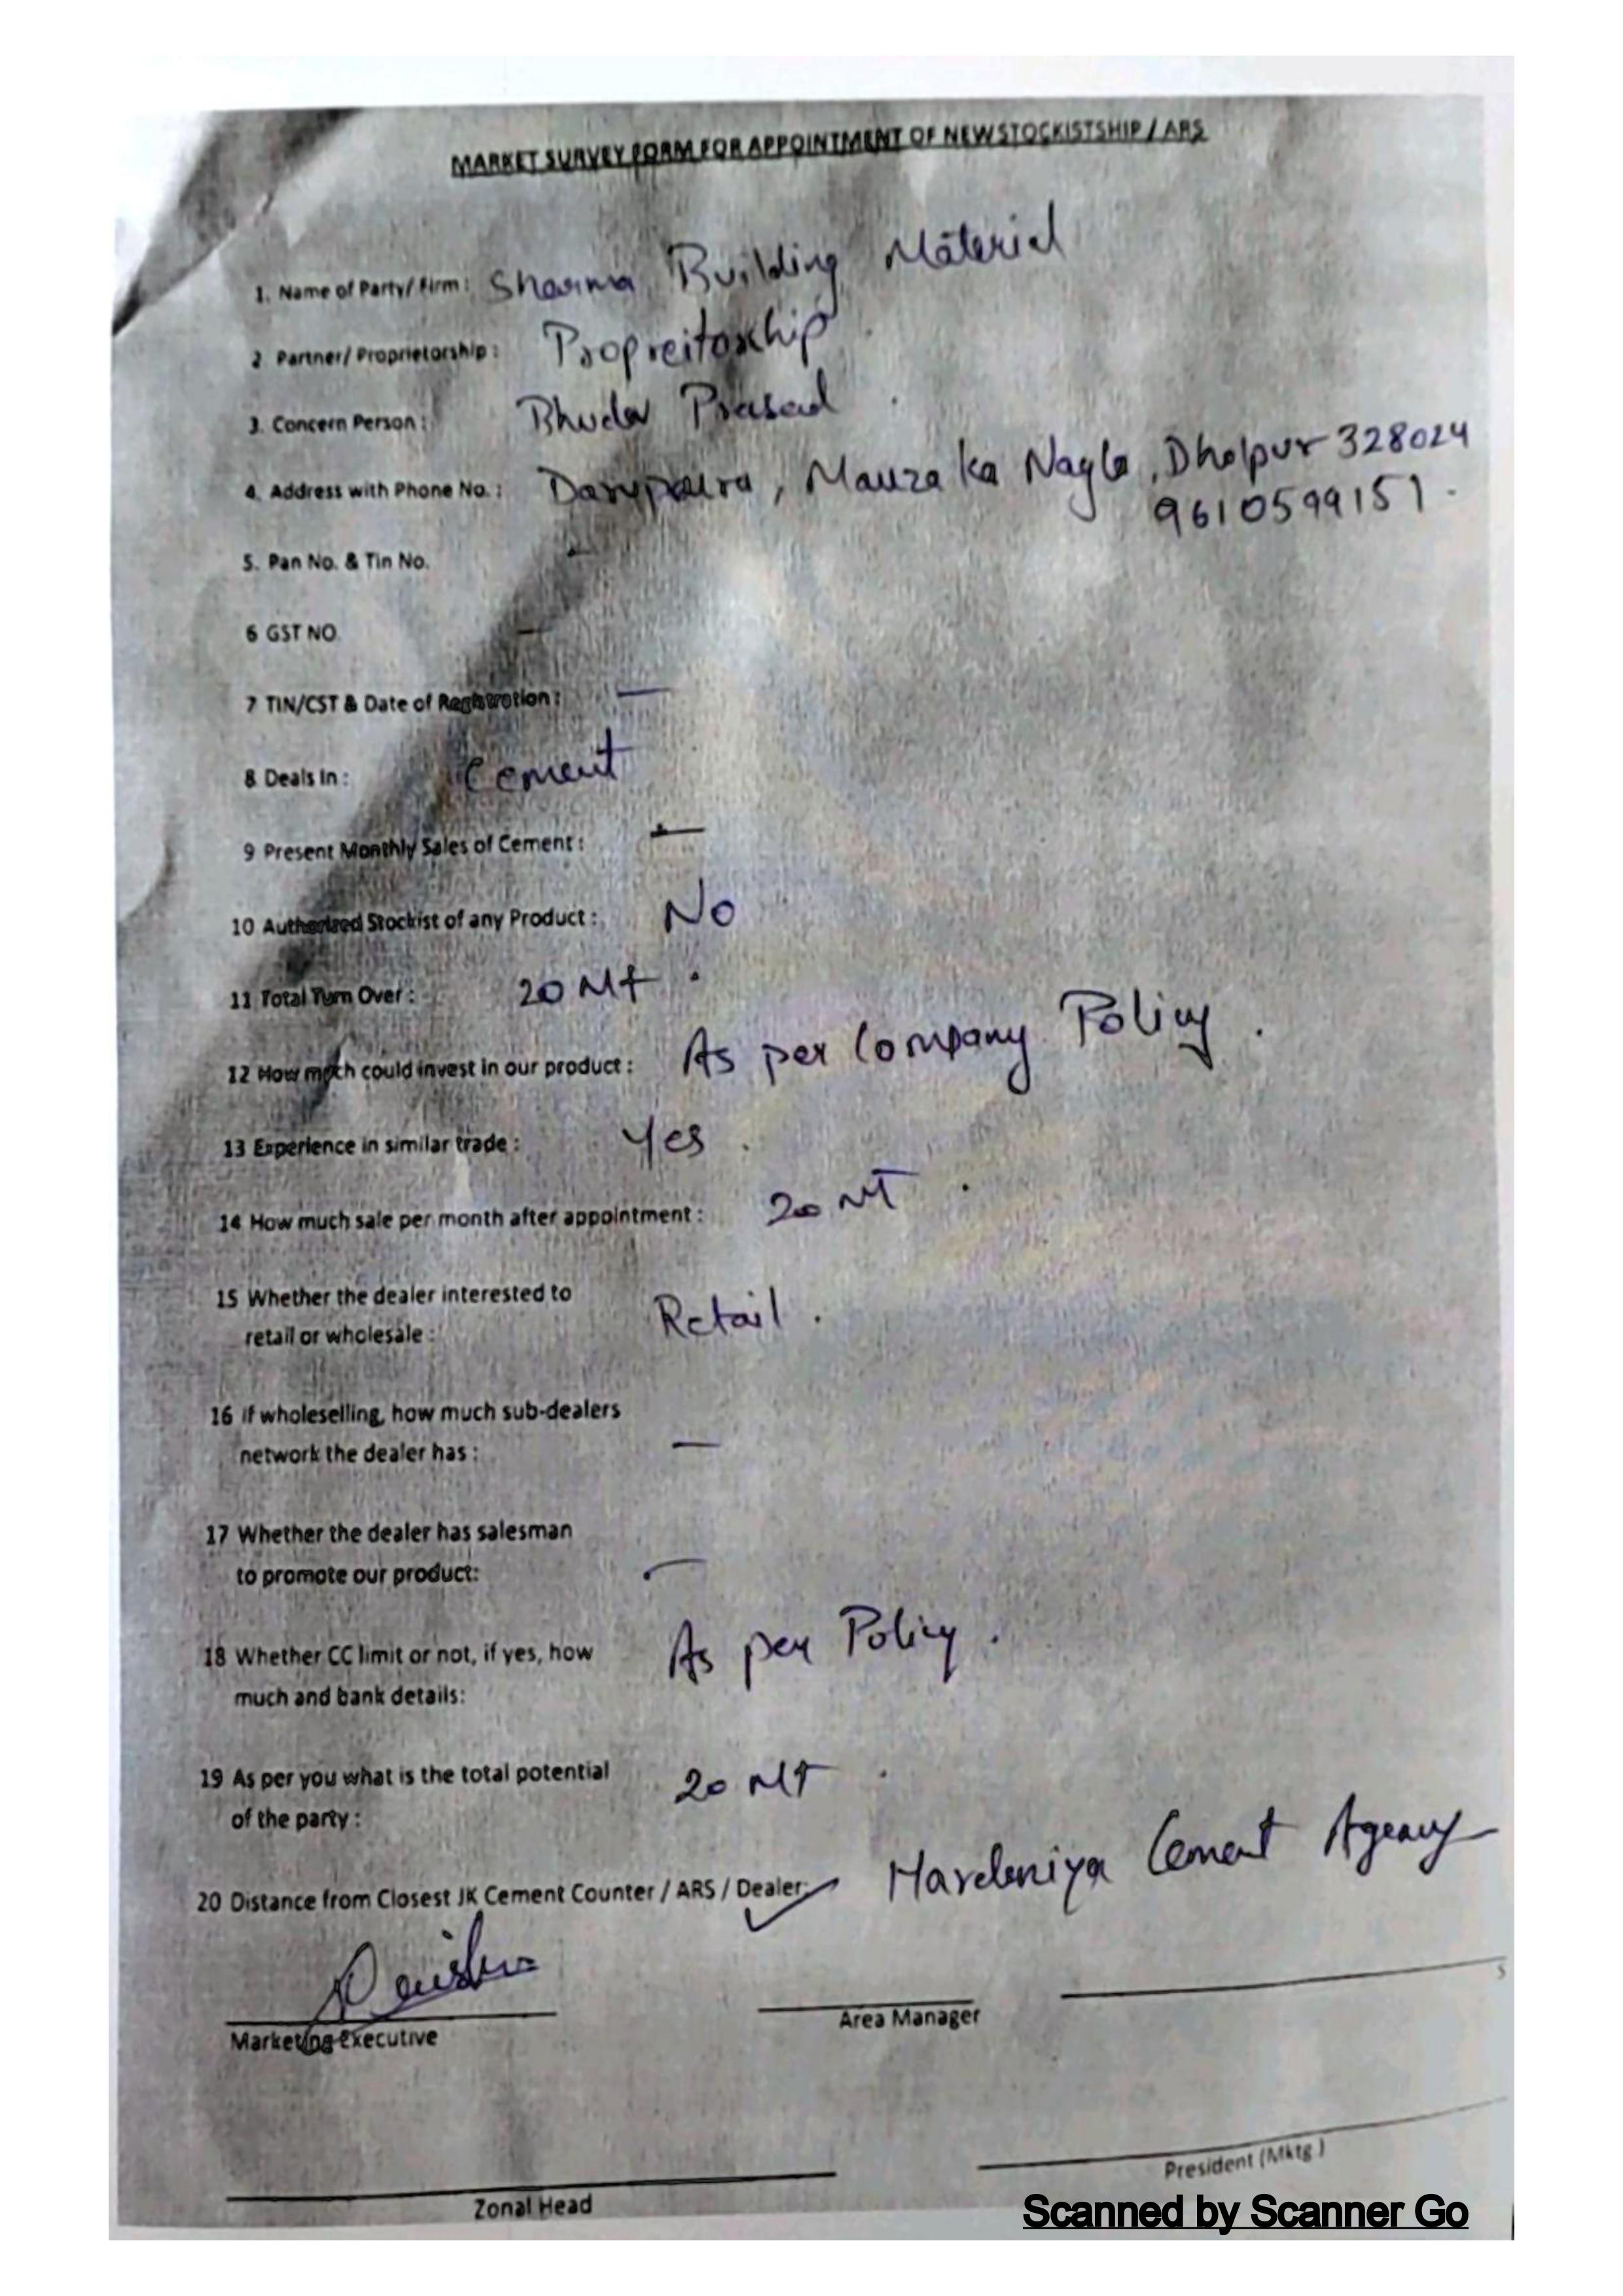 MARKET SURVEY FORM FOR APPOINTMENT OF NEW STOCKISTSHIP / ARS
1. Name of Party/ Firm : Sharma Building Material
2 Partner/ Proprietorship : Propreitorship
3. Concern Person : Bhudev Prasad
4. Address with Phone No. : Mauza ka Nagla, Dholpur 328024
9610599151
5. Pan No. & Tin No. -
6 GST NO. -
7 TIN/CST & Date of Registration : —
8 Deals In : Cement
9 Present Monthly Sales of Cement : —
10 Authorized Stockist of any Product : No
11 Total Turn Over : 20 Mt.
12 How much could invest in our product : As per Company Policy.
13 Experience in similar trade : Yes.
14 How much sale per month after appointment : 20 MT.
15 Whether the dealer interested to
retail or wholesale : Retail.
16 if wholeselling, how much sub-dealers
network the dealer has : —
17 Whether the dealer has salesman
to promote our product: —
18 Whether CC limit or not, if yes, how As per Policy.
much and bank details:
19 As per you what is the total potential 20 MT.
of the party :
20 Distance from Closest JK Cement Counter / ARS / Dealer: ✓ Cement Agency
Marketing Executive Area Manager
President (Mktg.)
Zonal Head
Scanned by Scanner Go